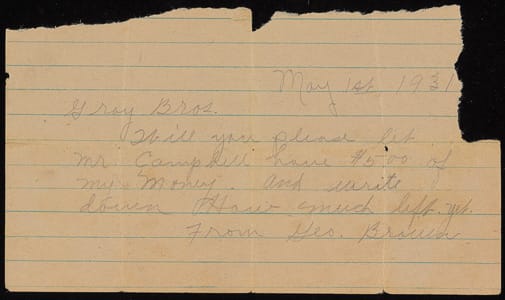 May 1st 1931
Gray Bros.
Will you please let
Mr. Campbell have $5.00 of
my Money. and write
down How much left. yet.
From Geo. Brown